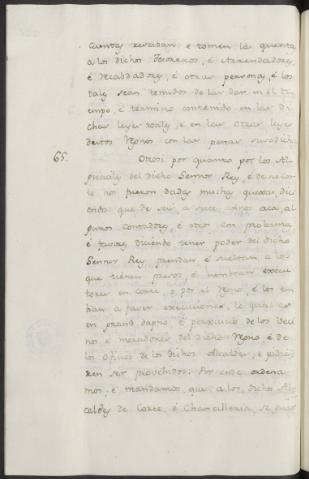 cuentas reciban e tomen las quentas
a los dichos Tesoreros, é Arrendadores,
é Recabdadores, é otras personas, é los
tales sean tenudos de las dar en el ti-
empo, é término contenido en las di-
chas leyes reales, é en las otras leyes
destos Reynos con las penas susodichas
65. Otrosí por quanto por los Al-
caldes del dicho Sennor Rey, é de su cor-
te nos fueron dadas muchas quexas, dici-
endo que de seis, a siete annos acá, al-
gunos contadores, é otros con
é diciendo tener poder del dicho
Sennor Rey prendan é sueltan a los
que tienen presos, é nombran execu-
tores en corte, é por el Reyno, é los em-
bían a facer execuciones, lo qual es
en grand dapno, é perjuicio de los veci-
nos é moradores del dicho Reyno, é de
los Oficios de los dichos alcaldes, e pidié-
ren ser provehidos: Por ende ordena-
mos, é mandamos, que a los dichos Al-
caldes de Corte, é Chancilleria, se